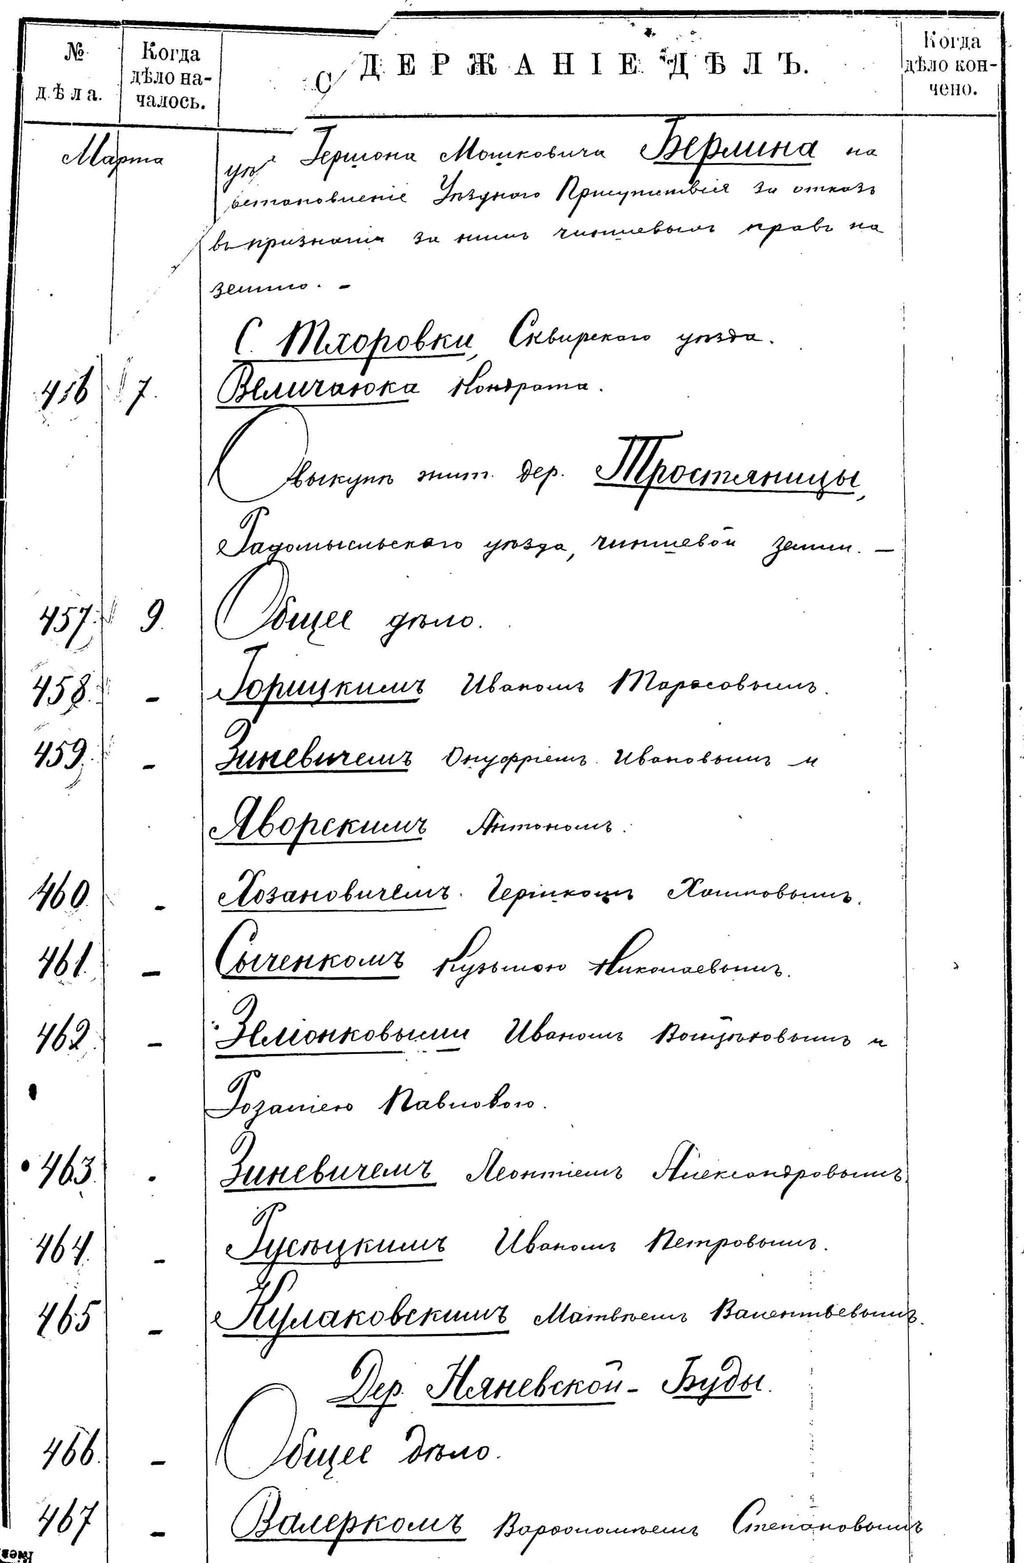 № дѣла.
Когда дѣло началось.
СОДЕРЖАНІЕ ДѢЛЪ.
Когда дѣло кончено.
Марта
Гершона Мошковича Берлина на
Уѣзднаго Присутствія за отказъ
въ признаніи за нимъ чиншевыхъ правъ на
землю. —
С. Тхоровки, Сквирскаго уѣзда.
456 7. Величаюка Кондрата.
О выкупѣ жит. дер. Тростяницы,
Радомысльскаго уѣзда, чиншевой земли. —
457 9. Общее дѣло.
458. – Горицкимъ Иваномъ Тарасовымъ.
459. – Зиневичемъ Онуфріемъ Ивановымъ и
Яворскимъ Антономъ.
460. – Хозановичемъ
461. – Сыченкомъ Кузьмою Николаевымъ.
462. – Зеліонковыми Иваномъ и
Розаліею Павловою.
463. – Зиневичемъ Леонтіемъ Александровымъ.
464. – Иваномъ Петровымъ.
465 – Кулаковскимъ Матвѣемъ Валентьевымъ.
Дер. Няневской-Буды.
466. – Общее дѣло.
467 – Валеркомъ Степановымъ